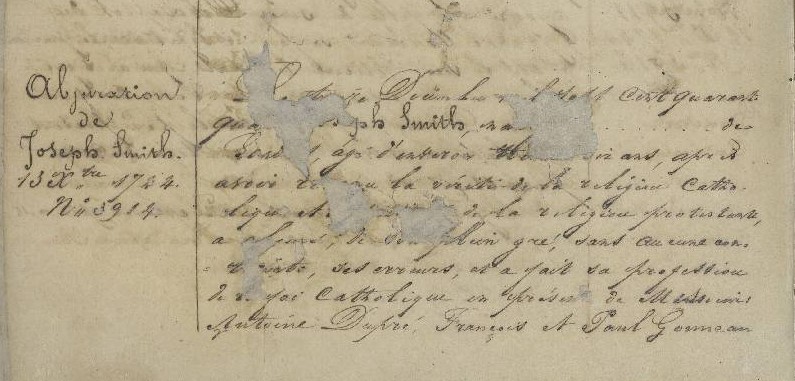 Abjuration
de
Joseph Smith.
13 Xbre 1744.
No 3914.
Décembre mil sept cent quarante
qua ph Smith, na de
agé d'environ ans, après
avoir la vérité de la religion Catho-
lique et de la religion protestante,
a abjuré, de plein gré, sans aucune con-
-trainte, ses erreurs, et a fait sa profession
de foi Catholique en présence de Messieurs
Antoine Dupré, François et Paul Gonneau